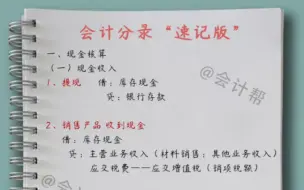 会计分录“速记版”
一、现金核算
（一）现金收入
1、提现　借：库存现金
贷：银行存款
@会计帮
2、销售产品收到现金
借：库存现金
贷：主营业务收入（材料销售：其他业务收入）
应交税费——应交增值税（销项税额）
@会计帮